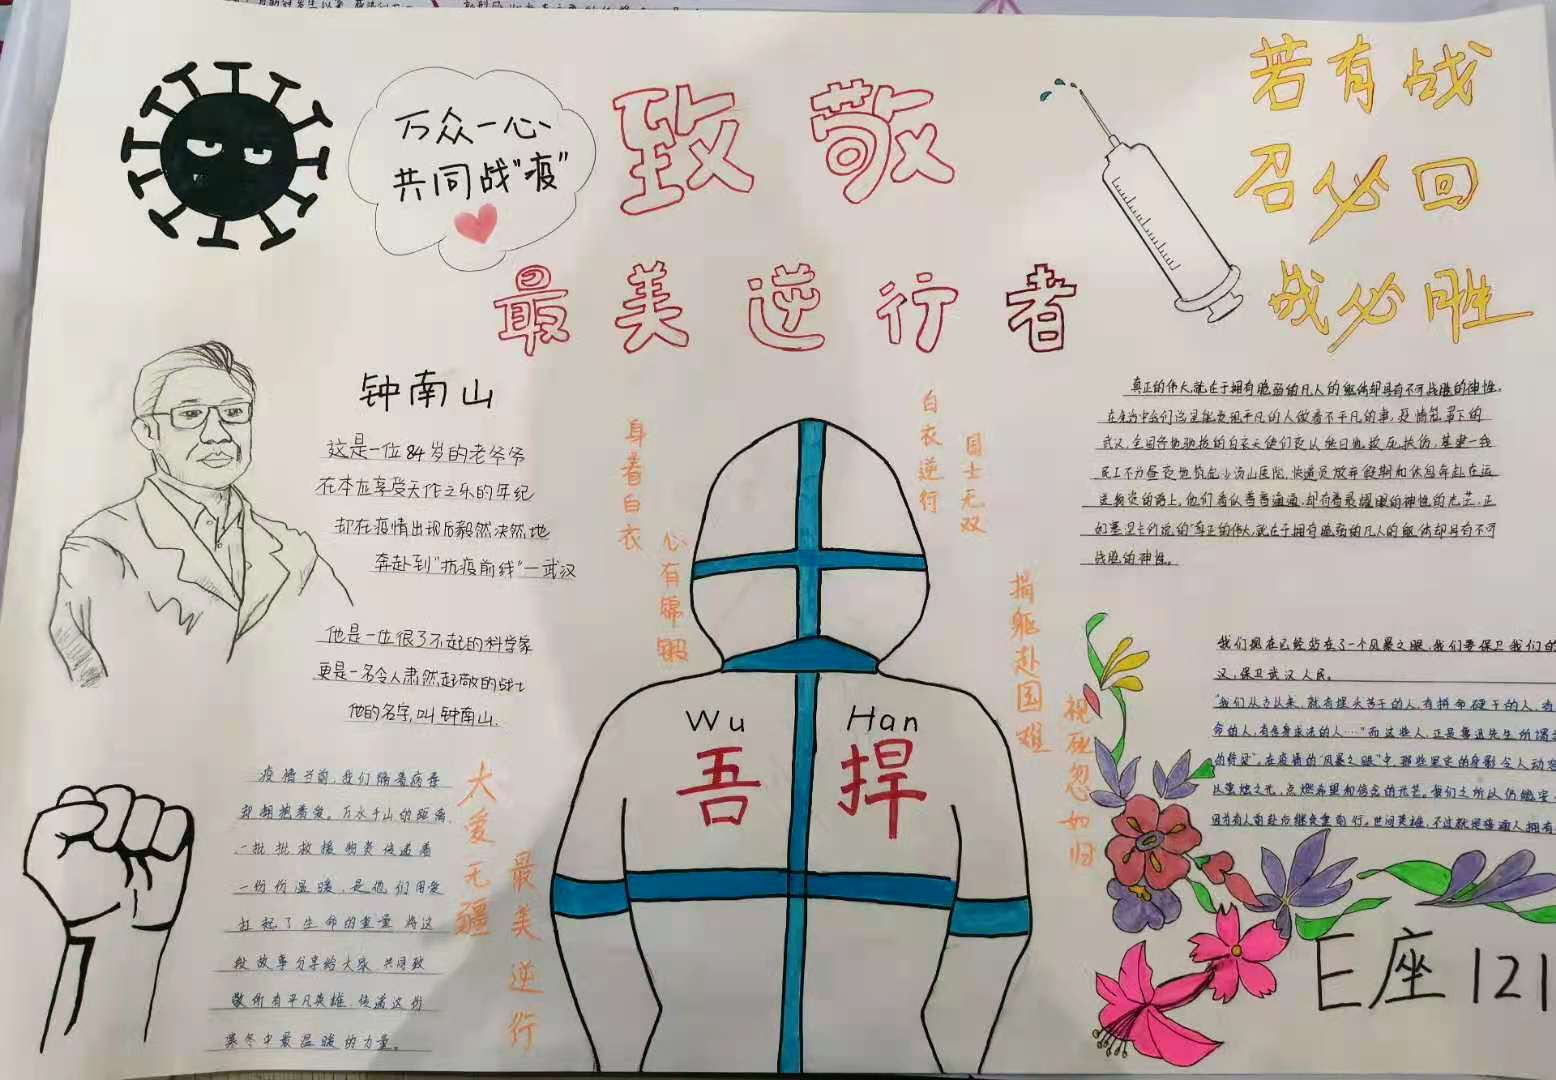 万众一心
共同战"疫"
致敬
最美逆行者
若有战
召必回
战必胜
钟南山
这是一位84岁的老爷爷
在本应享受天作之乐的年纪
却在疫情出现后毅然决然地
奔赴到"抗疫前线"—武汉
他是一位很了不起的科学家
更是一名令人肃然起敬的战士
他的名字,叫钟南山.
身着白衣
心有锦缎
白衣逆行
国士无双
捐躯赴国难
视死忽如归
真正的伟大,就在于拥有脆弱的凡人的躯体却具有不可战胜的神性。
在生活中我们总是能发现平凡的人做着不平凡的事,疫情笼罩下的
武汉,全国各地驰援的白衣天使们夜以继日地救死扶伤,基建一线
民工不分昼夜地筑起火汤山医院,快递员放弃假期和休息奔赴在运
送物资的路上,他们看似普普通通,却有着最耀眼的神性的光芒,正
如塞涅卡所说的"真正的伟大,就在于拥有脆弱的凡人的躯体却具有不可
战胜的神性。
我们现在已经站在了一个风暴之眼,我们要保卫我们的
汉,保卫武汉人民。
"我们从古以来,就有埋头苦干的人,有拼命硬干的人,有
命的人,有舍身求法的人……"而这些人,正是鲁迅先生所谓
的脊梁"。在疫情的"风暴之眼"中,那些坚定的身影令人动容
以萤烛之光,点燃希望和信念的光芒。我们之所以仍能
因为有人奋赴后继负重前行。世间英雄,不过就是普通人拥有
Wu Han
吾捍
疫情当前,我们隔着病毒
却拥抱着爱。万水千山的距离,
一批批救援物资传递着
一份份温暖,是他们用爱
扛起了生命的重量 将这
段故事分享给大家 共同致
敬所有平凡英雄,传递这份
寒冬中最温暖的力量。
大爱无疆
最美逆行
E座121